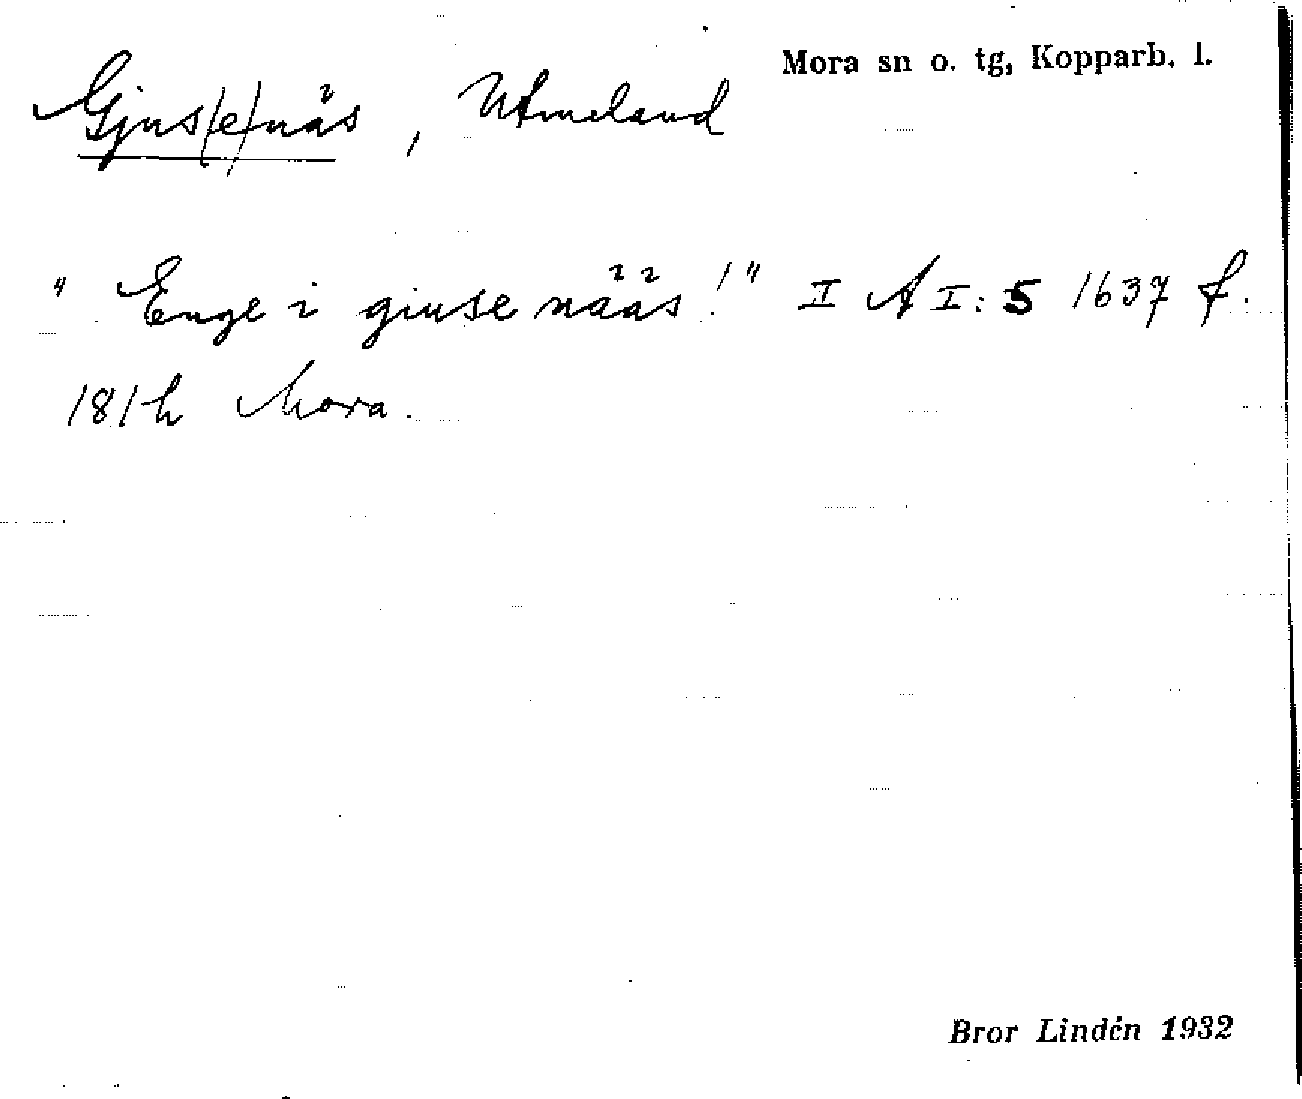 Mora sn o. tg, Kopparb. l.
Gjus(e)näs, Utmeland
"Enge i giuse nääs!" II A I: 5 1637 f.
181 h Mora.
Bror Lindén 1932